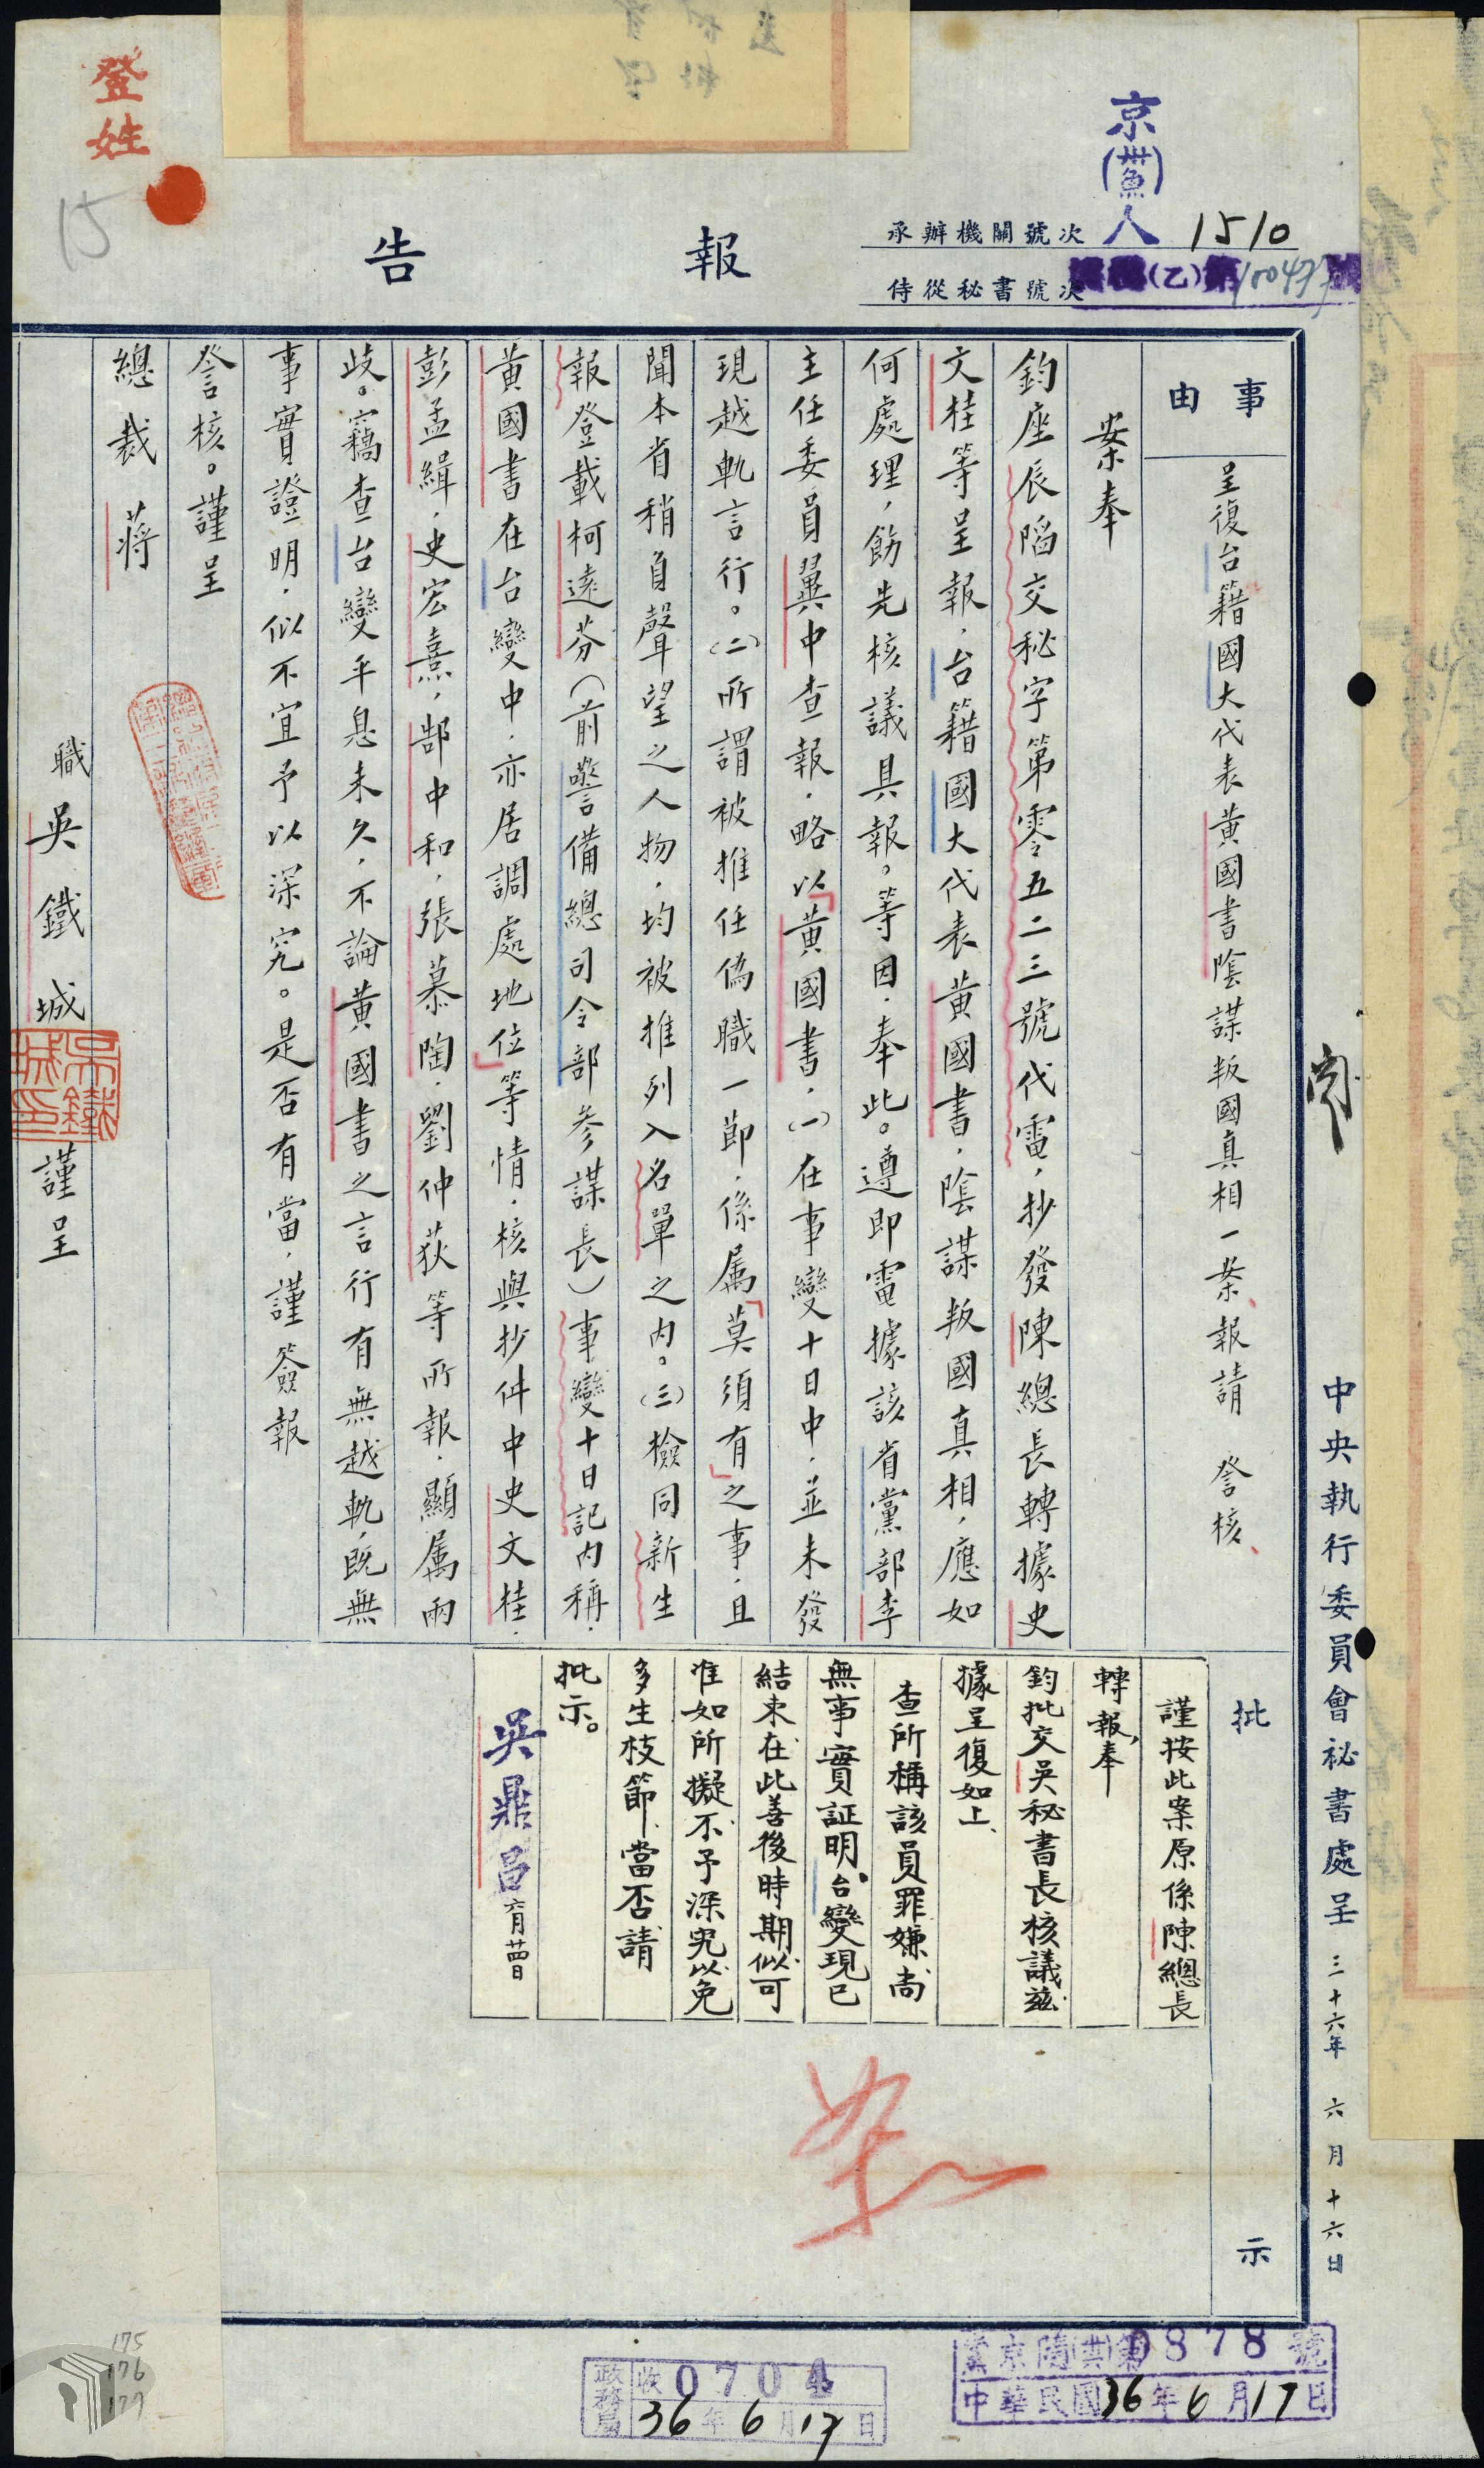 登姓
15
京(卅六)魚
人 1510
承辦機關號次
侍從秘書號次
(乙)第100477號
報告
中央執行委員會祕書處呈 三十六年 六月十六日
閱
事由
呈復台籍國大代表黃國書陰謀叛國真相一案、報請 詧核、
案奉
鈞座辰陷交秘字第零五二三號代電，抄發陳總長轉據史
文桂等呈報，台籍國大代表黃國書，陰謀叛國真相，應如
何處理，飭先核議具報。等因，奉此。遵即電據該省黨部李
主任委員翼中查報，略以「黃國書，(一)在事變十日中，並未發
現越軌言行。(二)所謂被推任偽職一節，係属「莫須有」之事，且
聞本省稍負聲望之人物，均被推列入名單之内。(三)檢同新生
報登載柯遠芬(前警備總司令部參謀長)事變十日記内稱，
黃國書在台變中，亦居調處地位」等情，核與抄件中史文桂，
彭孟緝，史宏熹，郜中和，張慕陶，劉仲荻等所報，顯属兩
歧。竊查台變平息未久，不論黃國書之言行有無越軌，既無
事實證明，似不宜予以深究。是否有當，謹簽報
詧核。謹呈
總裁 蔣
職 吳鐵城 謹呈
吳鐵城印
批示
謹按此案原係陳總長
轉報，奉
鈞批交吳秘書長核議茲
據呈復如上、
查所稱該員罪嫌尚
無事實証明，台變現已
結束在此善後時期似可
准如所擬不予深究以免
多生枝節當否請
批示。
吳鼎昌
如
政務局 收 0704
36年6月17日
第0878號
中華民國36年6月17日
175
176
177